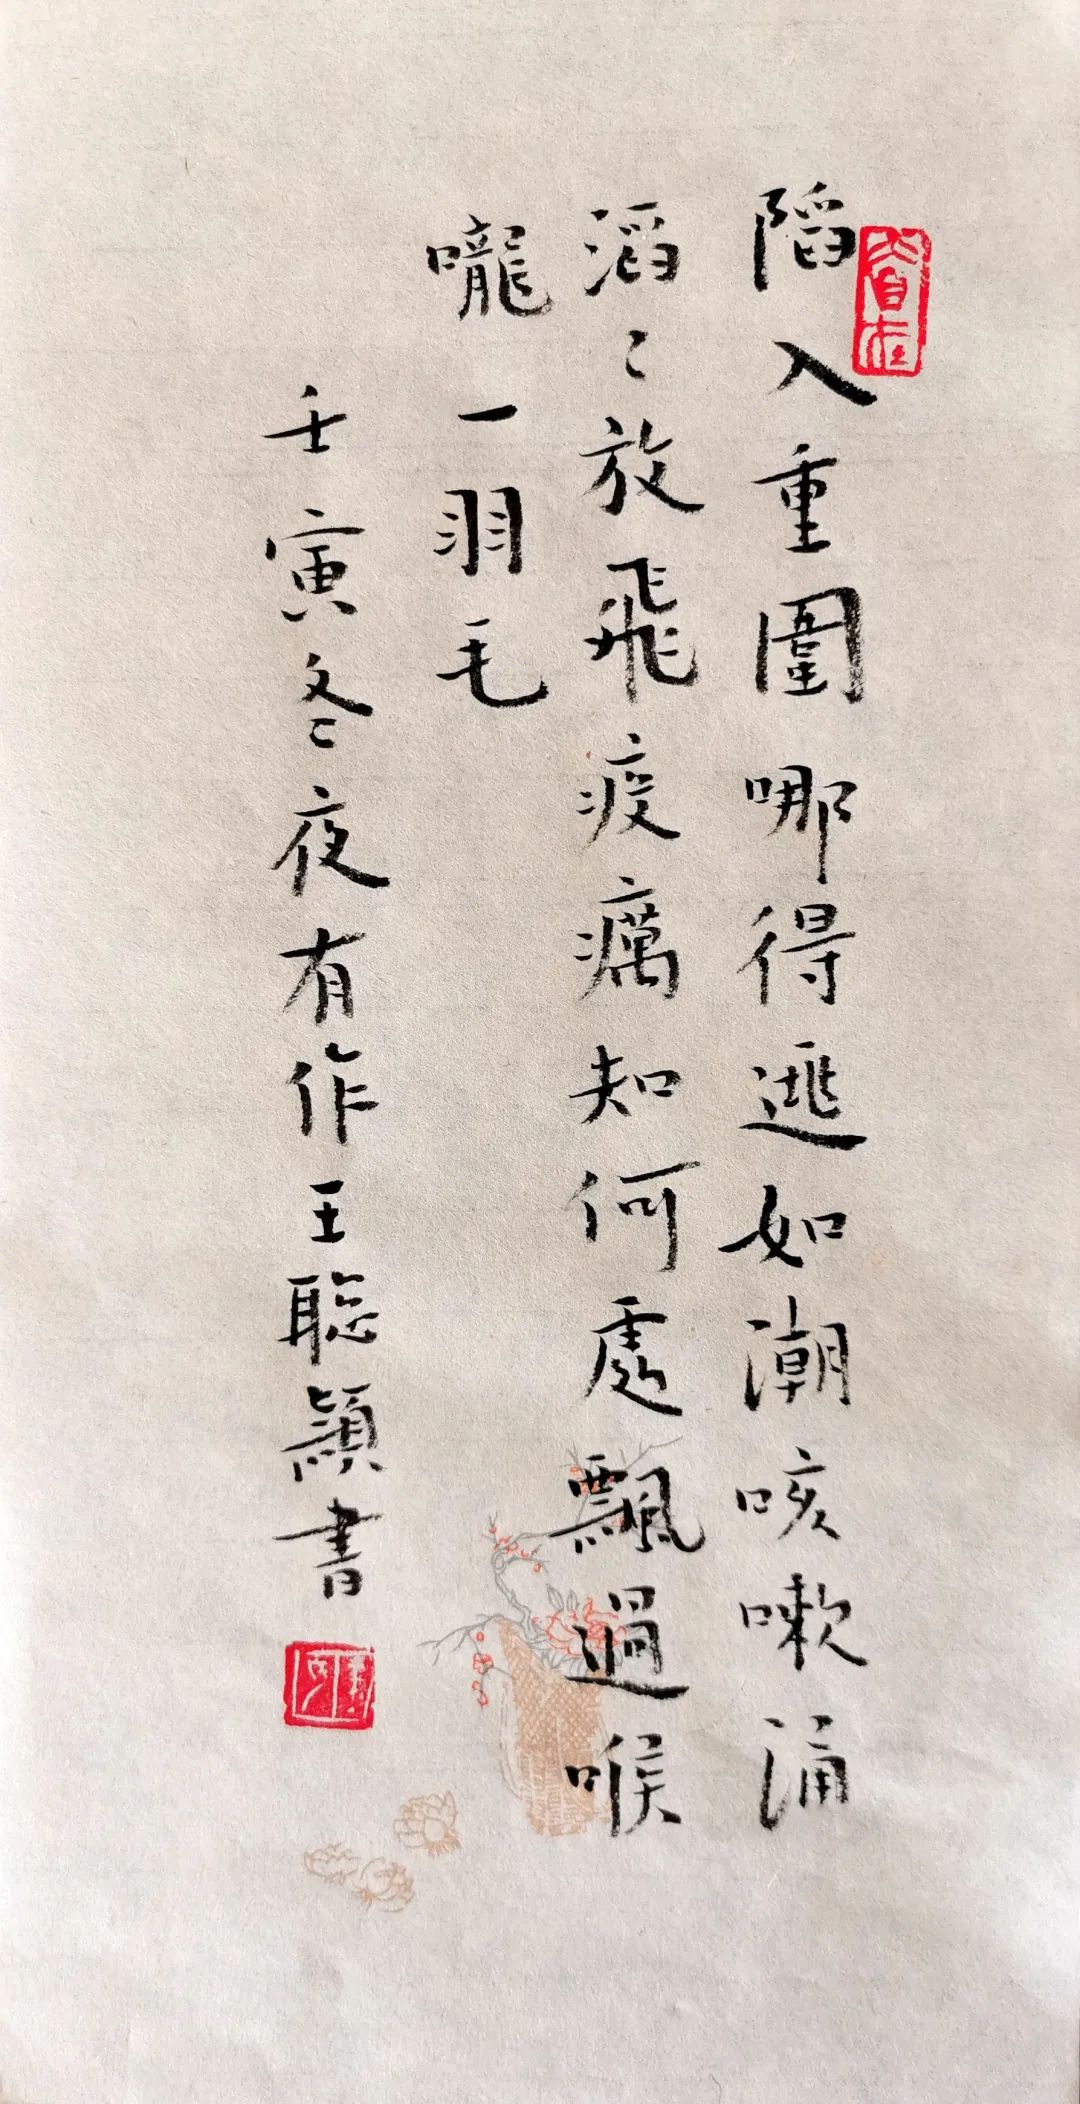 陷入重圍哪得逃如潮咳嗽涌
滔〻放飛疫癘知何處飄過喉
嚨一羽毛
壬寅冬夜有作王聰穎書